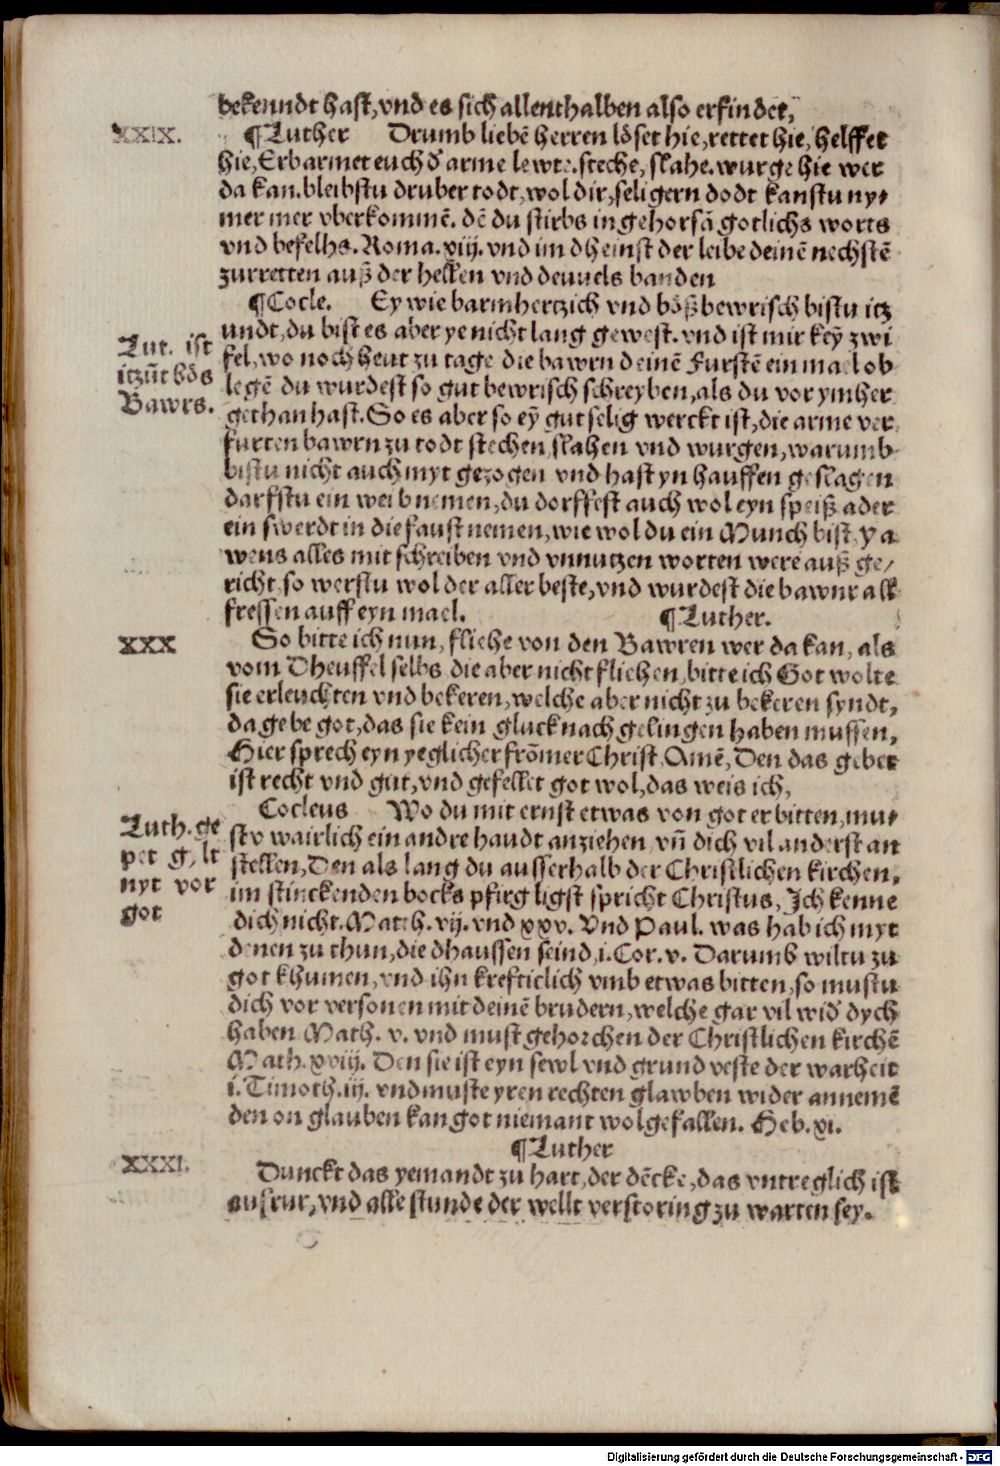 bekenndt hast, vnd es sich allenthalben also erfindet,
XXIX.
¶Luther Drumb liebē herren löset hie, rettet hie, helffet
hie, Erbarmet euch ď arme lewte. steche, slahe. wurge hie wer
da kan. bleibstu druber todt, wol dir, seligern dodt kanstu ny⸗
mer mer vberkommē. dē du stirbs in gehorsā gotlichs worts
vnd befelhs. Roma. xiij. vnd im dheinst der leibe deinē nechstē
zurretten auß der hellen vnd deuuels banden
¶Cocle. Ey wie barmhertzich vnd böß bewrisch bistu itz
undt, du bist es aber ye nicht lang gewest. vnd ist mir keȳ zwi
Lut. ist
itzūt bös
Bawrs.
fel, wo noch heut zu tage die bawrn deinē Furstē ein mael ob
legē du wurdest so gut bewrisch schreyben, als du vor ymher
gethan hast. So es aber so eȳ gut selig werckt ist, die arme ver
furten bawrn zu todt stechen slahen vnd wurgen, warumb
bistu nicht auch myt gezogen vnd hast yn hauffen geslagen
darfstu ein weib nemen, du dorffest auch wol eyn speiß ader
ein swerdt in die faust nemen, wie wol du ein Munch bist, ya
wens alles mit schreiben vnd vnnutzen worten were auß ge⸗
richt, so werstu wol der aller beste, vnd wurdest die bawnr all
fressen auff eyn mael. ¶Luther.
XXX
So bitte ich nun, fliehe von den Bawren wer da kan, als
vom Dheuffel selbs die aber nicht fliehen, bitte ich Got wolte
sie erleuchten vnd bekeren, welche aber nicht zu bekeren syndt,
da gebe got, das sie kein gluck nach gelingen haben mussen,
Hier sprech eyn yeglicher frōmer Christ, Amē, Den das gebet
ist recht vnd gut, vnd gefellet got wol, das weis ich,
Cocleus Wo du mit ernst etwas von got erbitten, mu⸗
Luth. ge
pet g lt
nyt vor
got
stv wairlich ein andre haudt anziehen vn̄ dich vil anderst an
stellen, Den als lang du ausserhalb der Christlichen kirchen,
im stinckenden bocks pfirg ligst spricht Christus, Ich kenne
dich nicht. Math. vij. vnd xxv. Vnd Paul. was hab ich myt
denen zu thun, die dhaussen seind, i. Cor. v. Darumb wiltu zu
got khumen, vnd ihn krefticlich vmb etwas bitten, so mustu
dich vor versonen mit deinē brudern, welche gar vil wiď dych
haben Math. v. vnd must gehorchen der Christlichen kirchē
Math. xviij. Den sie ist eyn sewl vnd grund veste der warheit
i. Timoth. iij. vnd muste yren rechten glawben wider annemē
den on glauben kan got niemant wolgefallen. Heb. xi.
¶Luther
XXXI.
Dunckt das yemandt zu hart, der dēcke, das vntreglich ist
aufrur, vnd alle stunde der wellt verstoring zu warten sey.
Digitalisierung gefördert durch die Deutsche Forschungsgemeinschaft - DFG